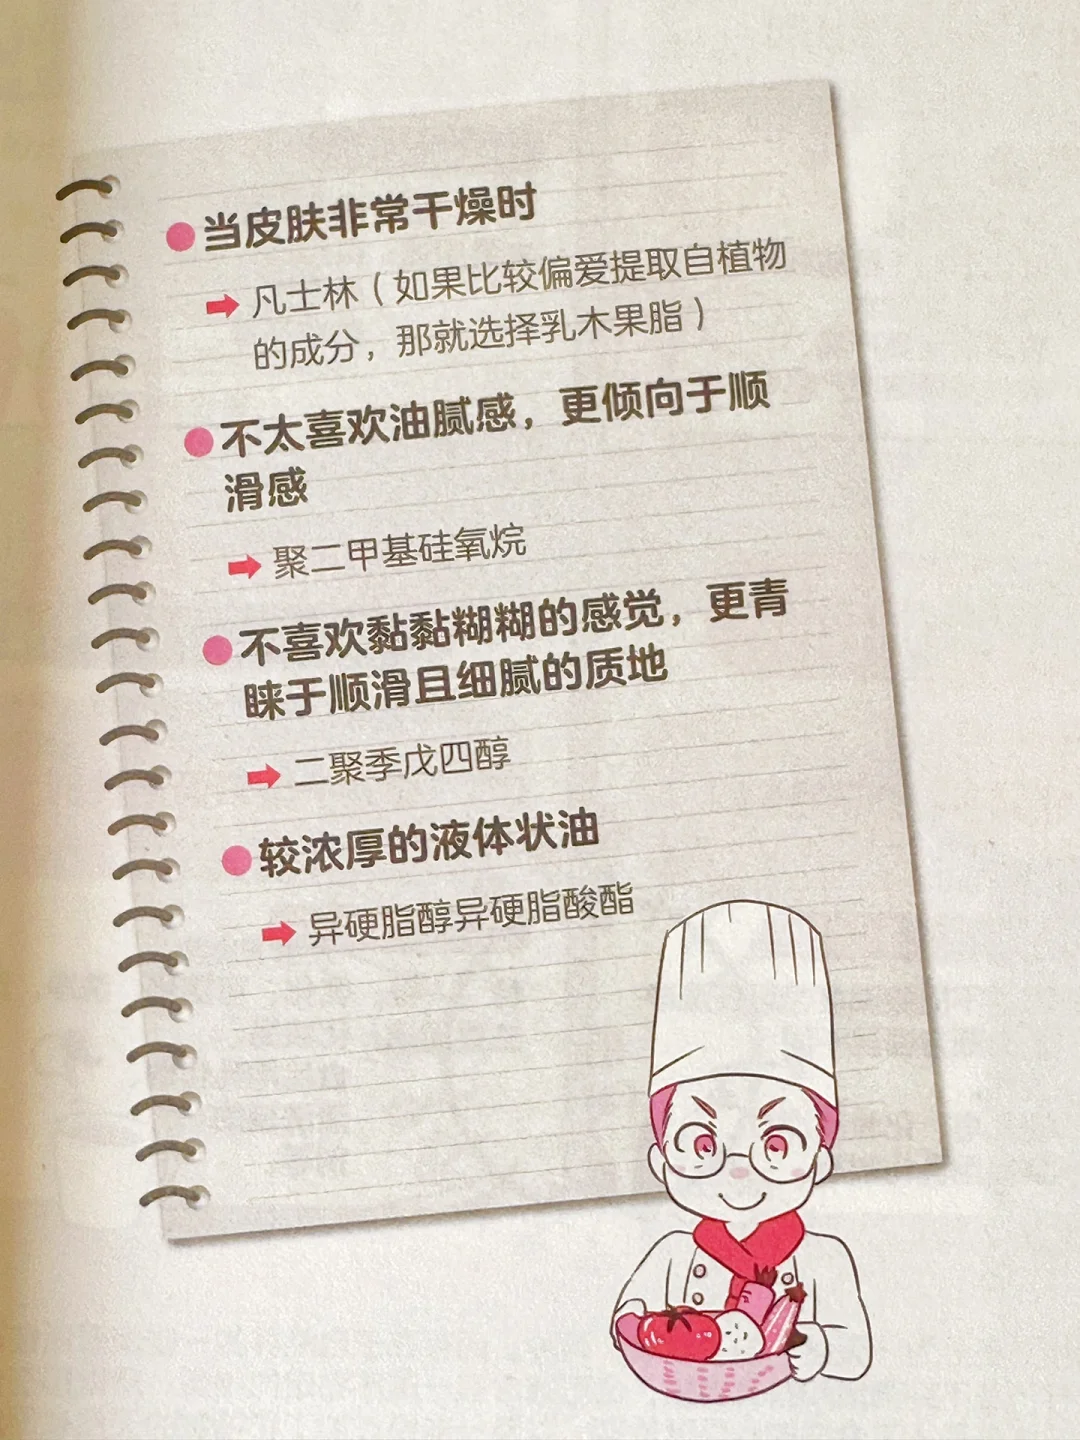 当皮肤非常干燥时
凡士林（如果比较偏爱提取自植物
的成分，那就选择乳木果脂）
不太喜欢油腻感，更倾向于顺
滑感
聚二甲基硅氧烷
不喜欢黏黏糊糊的感觉，更青
睐于顺滑且细腻的质地
二聚季戊四醇
较浓厚的液体状油
异硬脂醇异硬脂酸酯